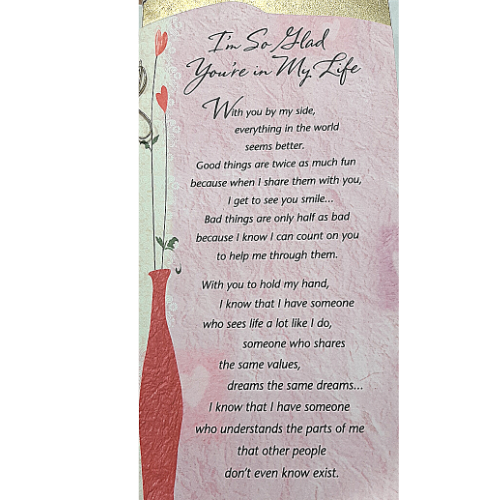 I'm So Glad
You're in My Life
With you by my side,
everything in the world
seems better.
Good things are twice as much fun
because when I share them with you,
I get to see you smile...
Bad things are only half as bad
because I know I can count on you
to help me through them.
With you to hold my hand,
I know that I have someone
who sees life a lot like I do,
someone who shares
the same values,
dreams the same dreams...
I know that I have someone
who understands the parts of me
that other people
don't even know exist.